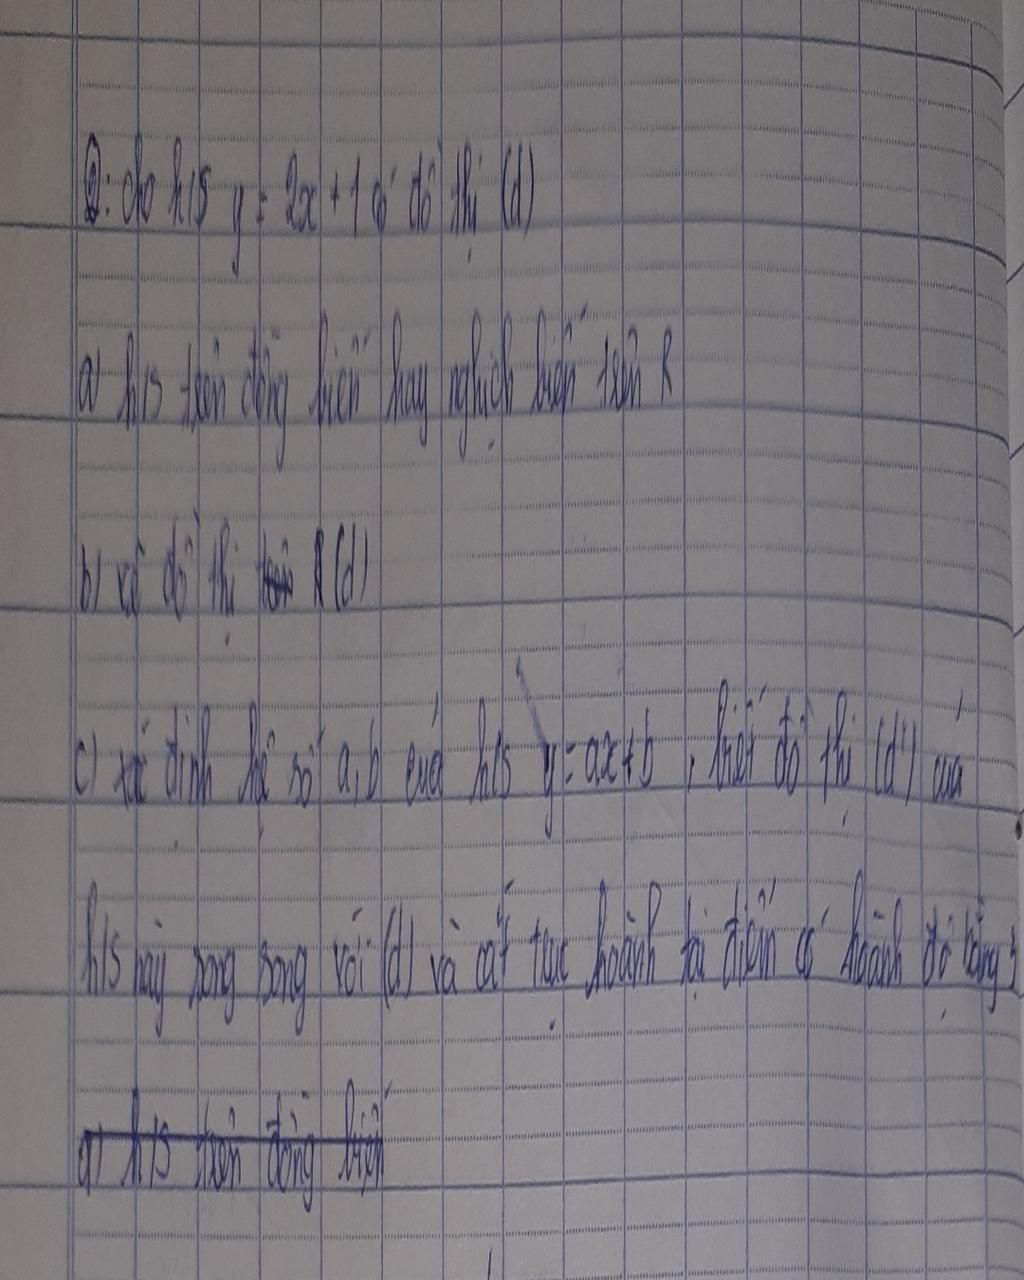 2: cho h/s y = 2x + 1 có đồ thị (d)
a) h/s trên đồng biến hay nghịch biến trên R
b) vẽ đồ thị (d)
c) xác định hệ số a, b của h/s y = ax + b, biết đồ thị (d') của
h/s này song song với (d) và cắt trục hoành tại điểm có hoành độ bằng 3
a) h/s trên đồng biến